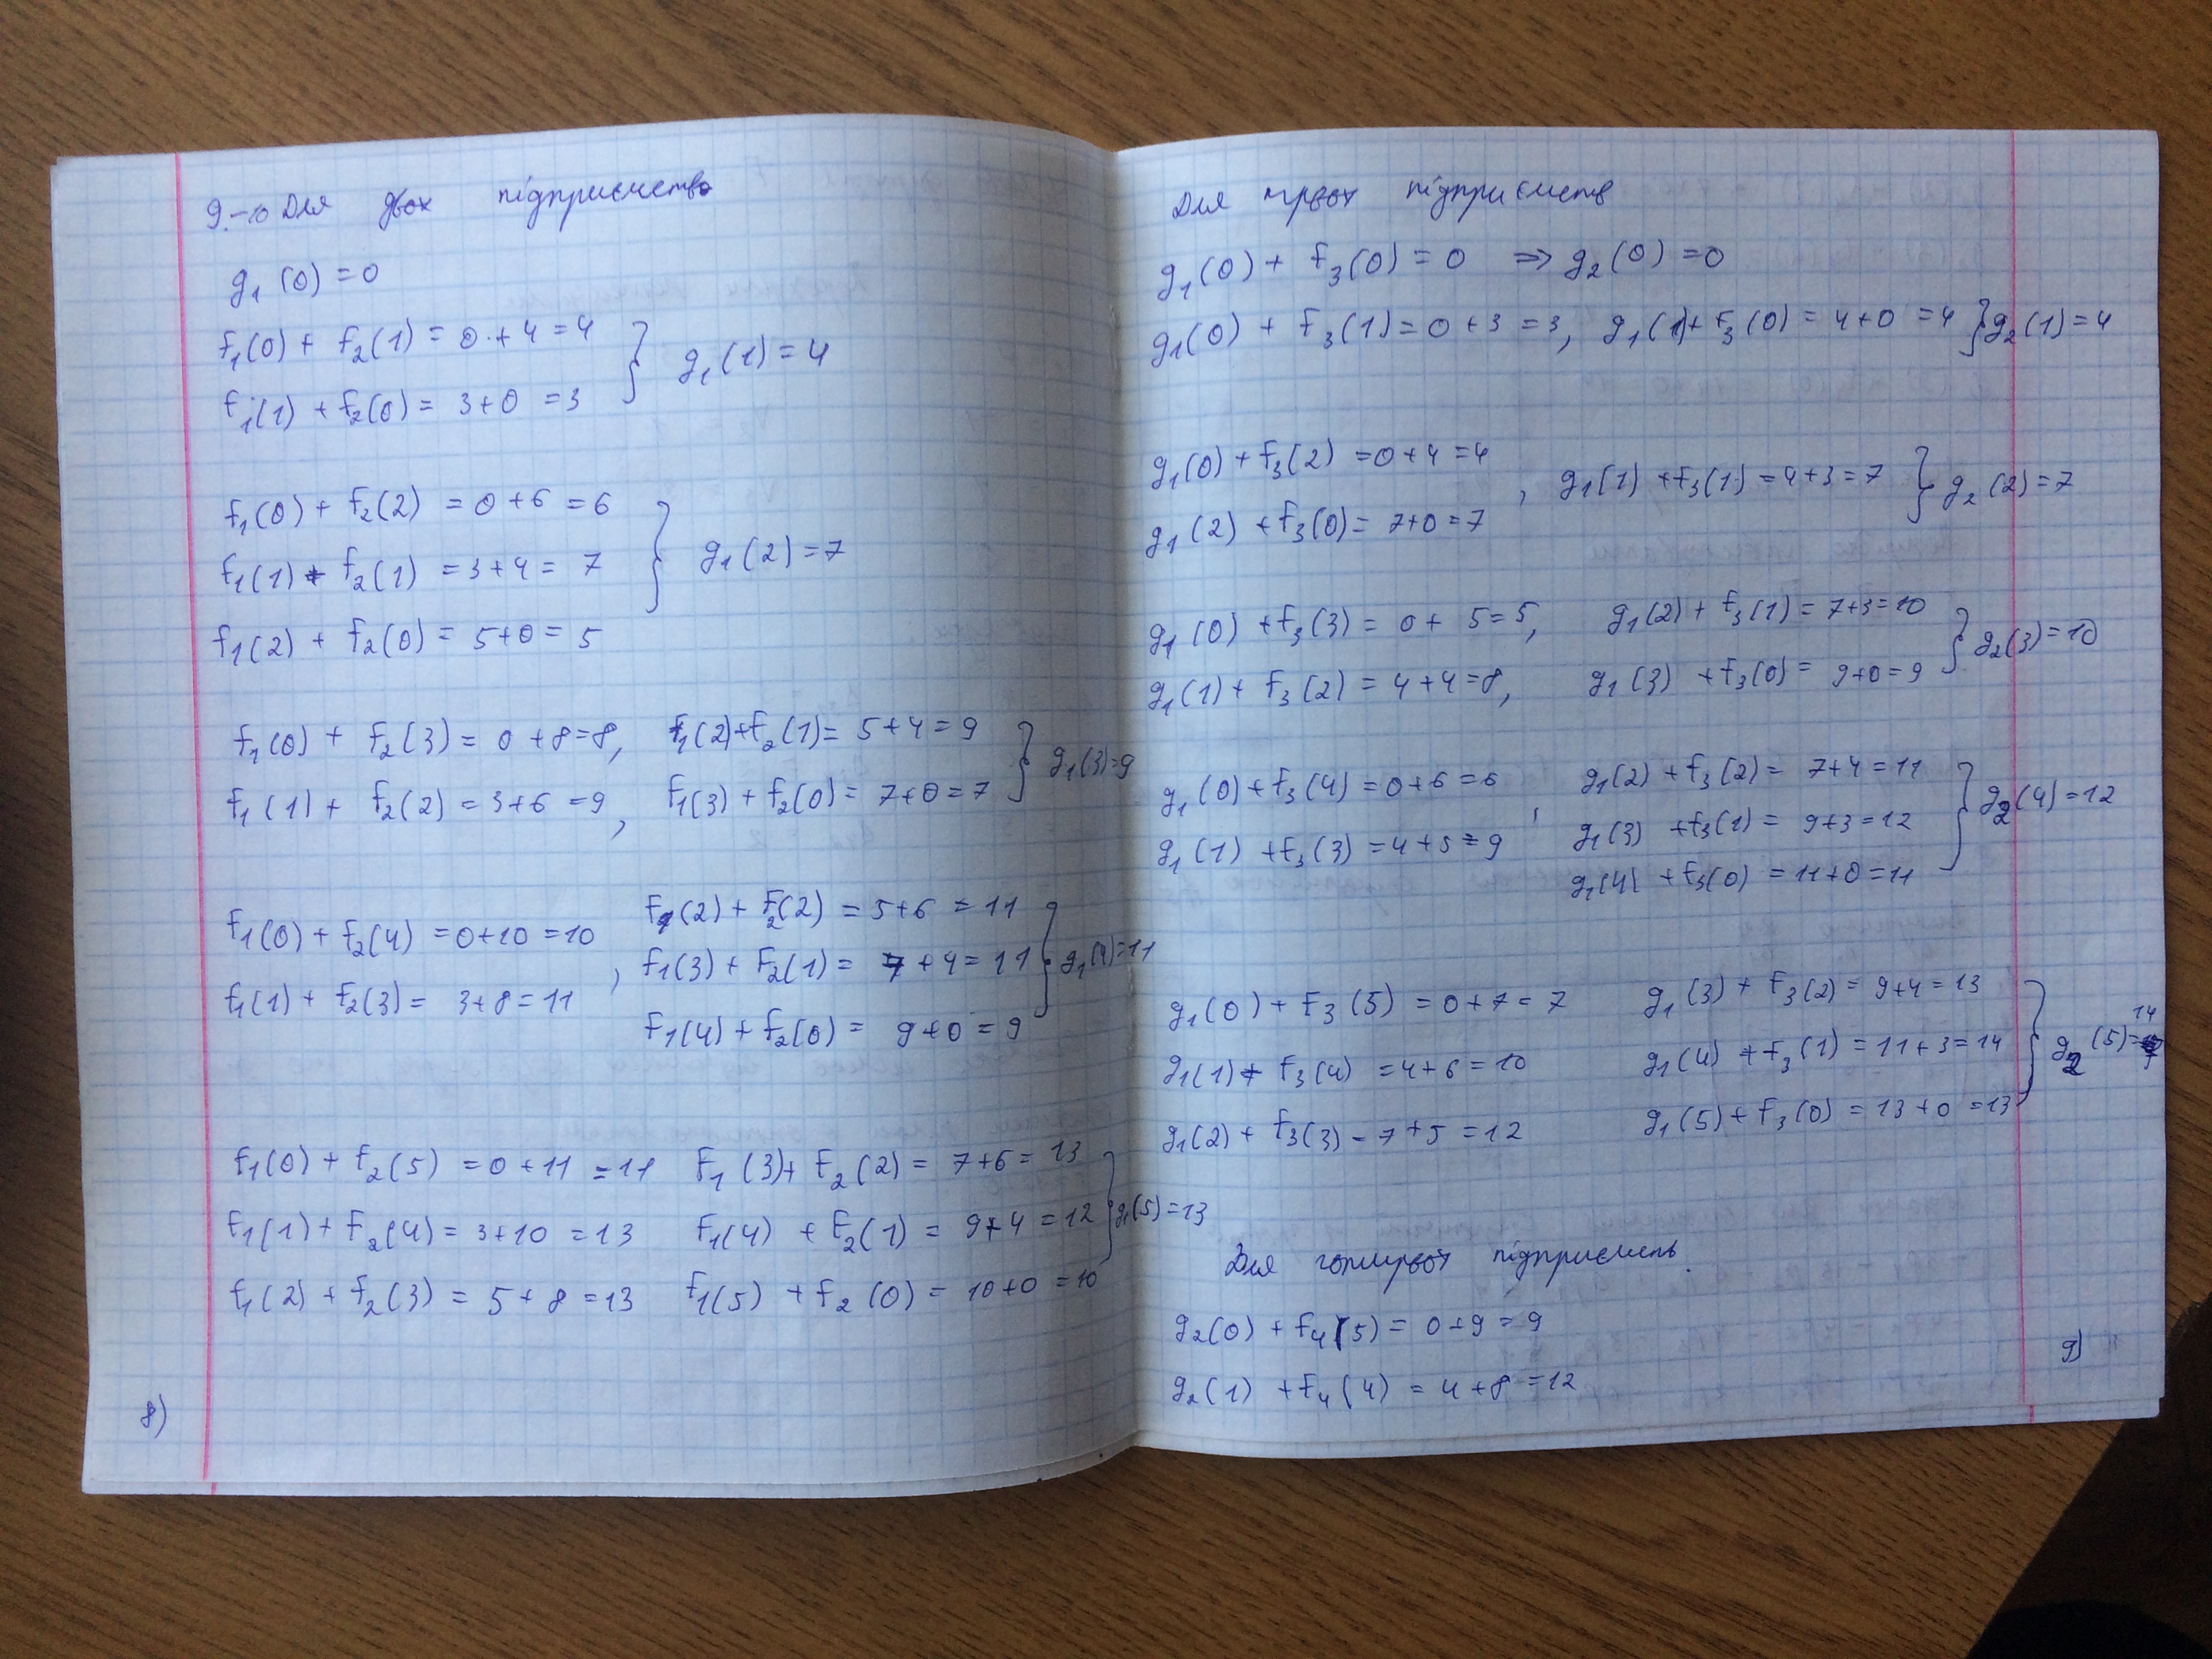 9.-10 Для двох підприємств
g₁(0) = 0
f₁(0) + f₂(1) = 0 + 4 = 4
f₁(1) + f₂(0) = 3 + 0 = 3 } g₁(1) = 4
f₁(0) + f₂(2) = 0 + 6 = 6
f₁(1) + f₂(1) = 3 + 4 = 7 } g₁(2) = 7
f₁(2) + f₂(0) = 5 + 0 = 5
f₁(0) + f₂(3) = 0 + 8 = 8, f₁(2) + f₂(1) = 5 + 4 = 9 } g₁(3) = 9
f₁(1) + f₂(2) = 3 + 6 = 9, f₁(3) + f₂(0) = 7 + 0 = 7
f₁(2) + f₂(2) = 5 + 6 = 11
f₁(0) + f₂(4) = 0 + 10 = 10, f₁(3) + f₂(1) = 7 + 4 = 11 } g₁(4) = 11
f₁(1) + f₂(3) = 3 + 8 = 11
f₁(4) + f₂(0) = 9 + 0 = 9
f₁(0) + f₂(5) = 0 + 11 = 11 f₁(3) + f₂(2) = 7 + 6 = 13
f₁(1) + f₂(4) = 3 + 10 = 13 f₁(4) + f₂(1) = 9 + 4 = 12 } g₁(5) = 13
f₁(2) + f₂(3) = 5 + 8 = 13 f₁(5) + f₂(0) = 10 + 0 = 10
8)
Для трьох підприємств
g₁(0) + f₃(0) = 0 ⇒ g₂(0) = 0
g₁(0) + f₃(1) = 0 + 3 = 3, g₁(1) + f₃(0) = 4 + 0 = 4 } g₂(1) = 4
g₁(0) + f₃(2) = 0 + 4 = 4, g₁(1) + f₃(1) = 4 + 3 = 7 } g₂(2) = 7
g₁(2) + f₃(0) = 7 + 0 = 7
g₁(0) + f₃(3) = 0 + 5 = 5, g₁(2) + f₃(1) = 7 + 3 = 10 } g₂(3) = 10
g₁(1) + f₃(2) = 4 + 4 = 8, g₁(3) + f₃(0) = 9 + 0 = 9
g₁(0) + f₃(4) = 0 + 6 = 6, g₁(2) + f₃(2) = 7 + 4 = 11
g₁(1) + f₃(3) = 4 + 5 = 9 g₁(3) + f₃(1) = 9 + 3 = 12 } g₂(4) = 12
g₁(4) + f₃(0) = 11 + 0 = 11
g₁(0) + f₃(5) = 0 + 7 = 7 g₁(3) + f₃(2) = 9 + 4 = 13
g₁(1) + f₃(4) = 4 + 6 = 10 g₁(4) + f₃(1) = 11 + 3 = 14 } g₂(5) = 14
g₁(2) + f₃(3) = 7 + 5 = 12 g₁(5) + f₃(0) = 13 + 0 = 13
Для чотирьох підприємств.
g₂(0) + f₄(5) = 0 + 9 = 9
g₂(1) + f₄(4) = 4 + 8 = 12
9)